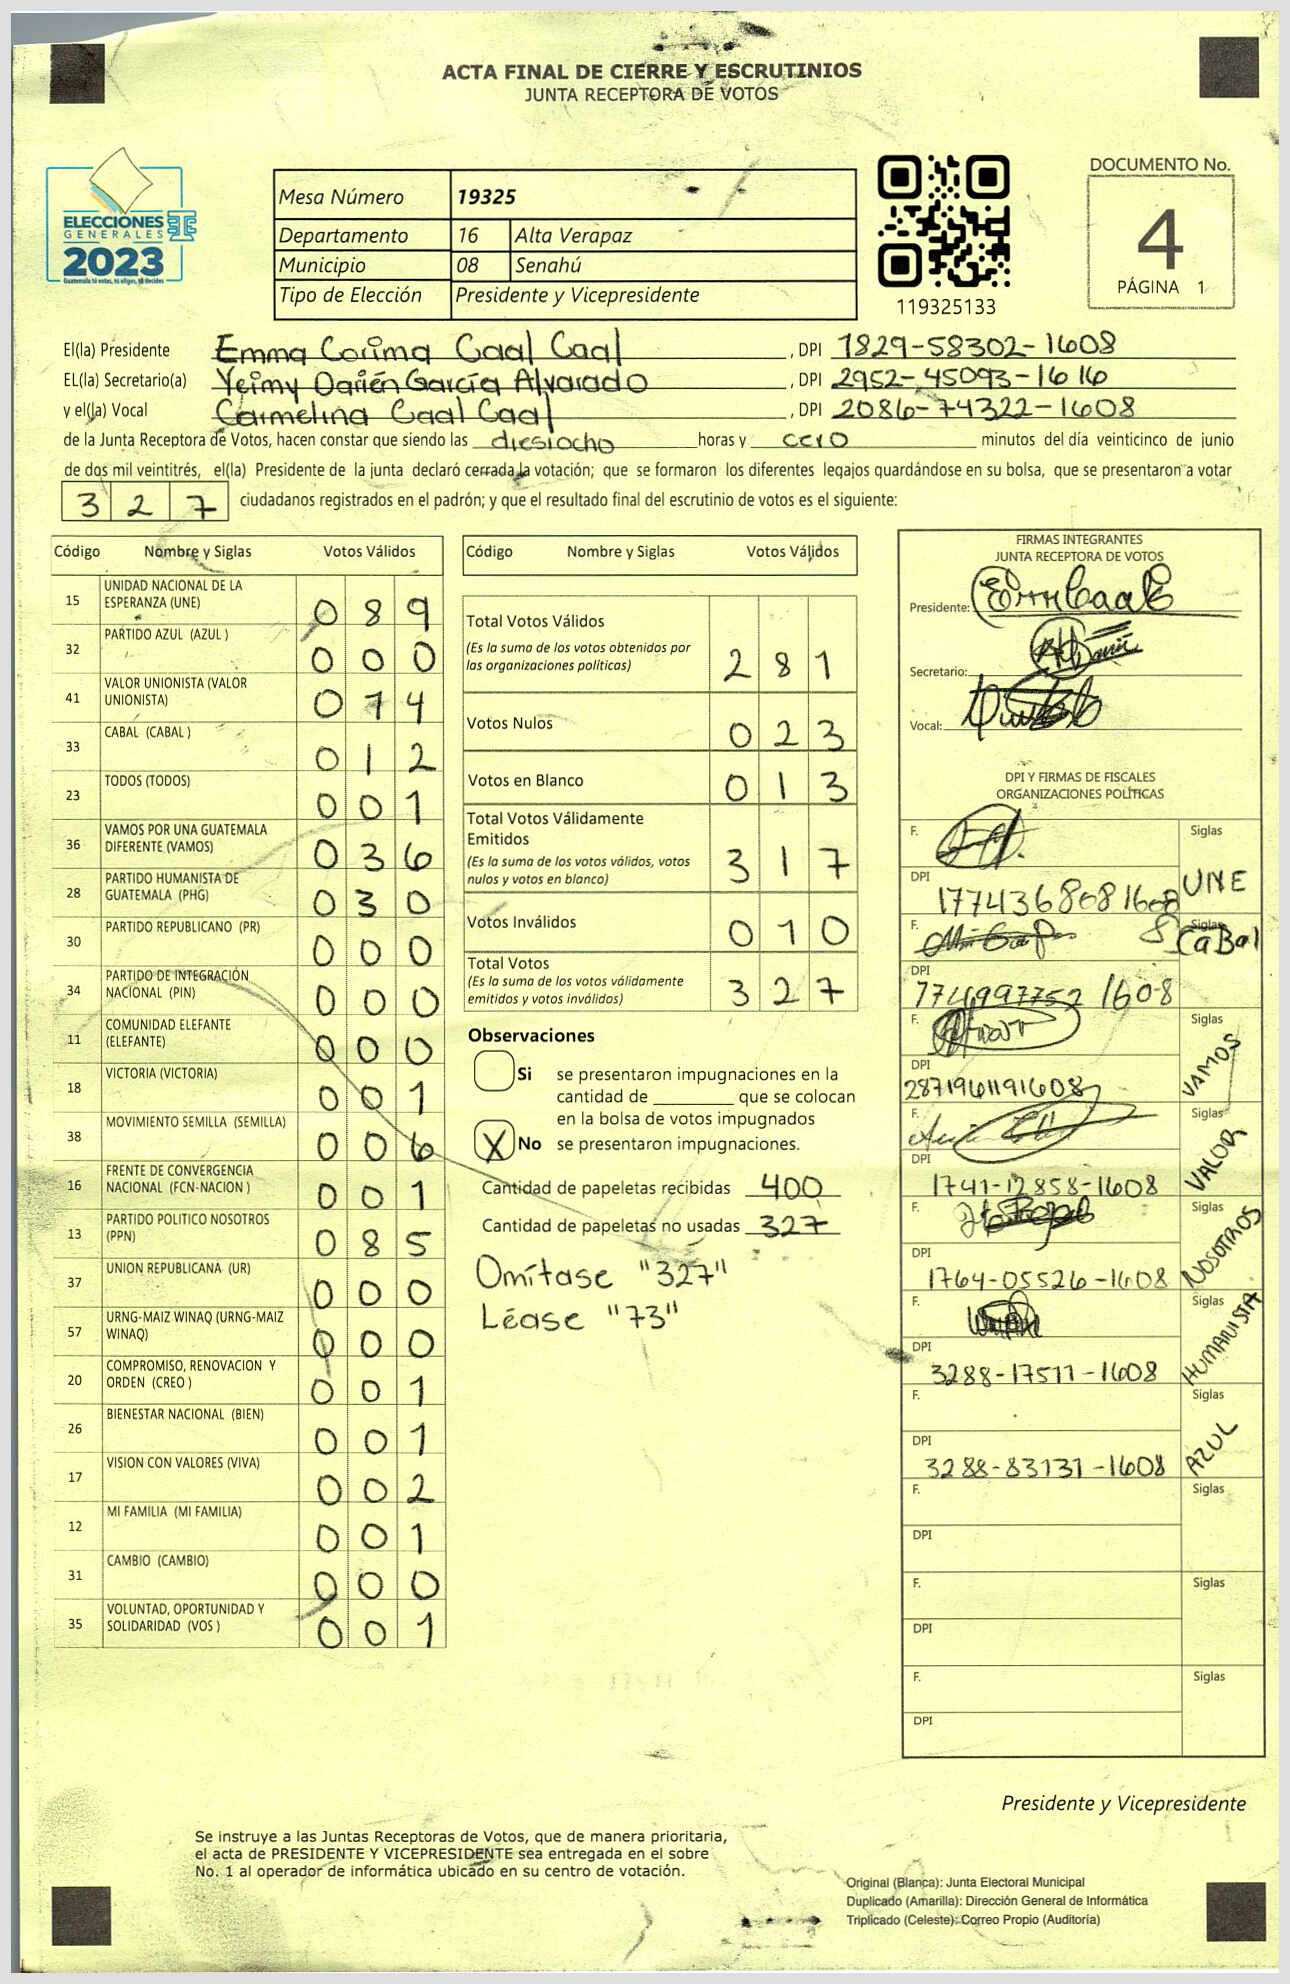 ACTA FINAL DE CIERRE Y ESCRUTINIOS
JUNTA RECEPTORA DE VOTOS
ELECCIONES
GENERALES
2023
Guatemala tú votas, tú eliges, tú decides
Mesa Número 19325
Departamento 16 Alta Verapaz
Municipio 08 Senahú
Tipo de Elección Presidente y Vicepresidente
119325133
DOCUMENTO No.
4
PÁGINA 1
El(la) Presidente Emma Corima Caal Caal , DPI 1829-58302-1608
EL(la) Secretario(a) Yeimy Darién García Alvarado , DPI 2952-45093-1616
y el(la) Vocal Carmelina Caal Caal , DPI 2086-74322-1608
de la Junta Receptora de Votos, hacen constar que siendo las diesiocho horas y cero minutos del día veinticinco de junio
de dos mil veintitrés, el(la) Presidente de la junta declaró cerrada la votación; que se formaron los diferentes legajos quardándose en su bolsa, que se presentaron a votar
3 2 7 ciudadanos registrados en el padrón; y que el resultado final del escrutinio de votos es el siguiente:
Código Nombre y Siglas Votos Válidos
15 UNIDAD NACIONAL DE LA ESPERANZA (UNE) 0 8 9
32 PARTIDO AZUL (AZUL ) 0 0 0
41 VALOR UNIONISTA (VALOR UNIONISTA) 0 7 4
33 CABAL (CABAL ) 0 1 2
23 TODOS (TODOS) 0 0 1
36 VAMOS POR UNA GUATEMALA DIFERENTE (VAMOS) 0 3 6
28 PARTIDO HUMANISTA DE GUATEMALA (PHG) 0 3 0
30 PARTIDO REPUBLICANO (PR) 0 0 0
34 PARTIDO DE INTEGRACIÓN NACIONAL (PIN) 0 0 0
11 COMUNIDAD ELEFANTE (ELEFANTE) 0 0 0
18 VICTORIA (VICTORIA) 0 0 1
38 MOVIMIENTO SEMILLA (SEMILLA) 0 0 6
16 FRENTE DE CONVERGENCIA NACIONAL (FCN-NACION ) 0 0 1
13 PARTIDO POLITICO NOSOTROS (PPN) 0 8 5
37 UNION REPUBLICANA (UR) 0 0 0
57 URNG-MAIZ WINAQ (URNG-MAIZ WINAQ) 0 0 0
20 COMPROMISO, RENOVACION Y ORDEN (CREO ) 0 0 1
26 BIENESTAR NACIONAL (BIEN) 0 0 1
17 VISION CON VALORES (VIVA) 0 0 2
12 MI FAMILIA (MI FAMILIA) 0 0 1
31 CAMBIO (CAMBIO) 0 0 0
35 VOLUNTAD, OPORTUNIDAD Y SOLIDARIDAD (VOS ) 0 0 1
Código Nombre y Siglas Votos Válidos
Total Votos Válidos 2 8 1
(Es la suma de los votos obtenidos por
las organizaciones políticas)
Votos Nulos 0 2 3
Votos en Blanco 0 1 3
Total Votos Válidamente
Emitidos 3 1 7
(Es la suma de los votos válidos, votos
nulos y votos en blanco)
Votos Inválidos 0 1 0
Total Votos 3 2 7
(Es la suma de los votos válidamente
emitidos y votos inválidos)
Observaciones
Si se presentaron impugnaciones en la
cantidad de ________ que se colocan
en la bolsa de votos impugnados
X No se presentaron impugnaciones.
Cantidad de papeletas recibidas 400
Cantidad de papeletas no usadas 327
Omítase "327"
Léase "73"
FIRMAS INTEGRANTES
JUNTA RECEPTORA DE VOTOS
Presidente:
Secretario:
Vocal:
DPI Y FIRMAS DE FISCALES
ORGANIZACIONES POLÍTICAS
F. Siglas UNE
DPI 1774368081608
F. Siglas CaBal
DPI 1608
F. Siglas VAMOS
DPI 2871961191608
F. Siglas VALOR
DPI 1741-12858-1608
F. Siglas NOSOTROS
DPI 1764-05526-1608
F. Siglas HUMANISTA
DPI 3288-17511-1608
F. Siglas AZUL
DPI 3288-83131-1608
F. Siglas
DPI
F. Siglas
DPI
F. Siglas
DPI
Presidente y Vicepresidente
Se instruye a las Juntas Receptoras de Votos, que de manera prioritaria,
el acta de PRESIDENTE Y VICEPRESIDENTE sea entregada en el sobre
No. 1 al operador de informática ubicado en su centro de votación.
Original (Blanca): Junta Electoral Municipal
Duplicado (Amarilla): Dirección General de Informática
Triplicado (Celeste): Correo Propio (Auditoría)